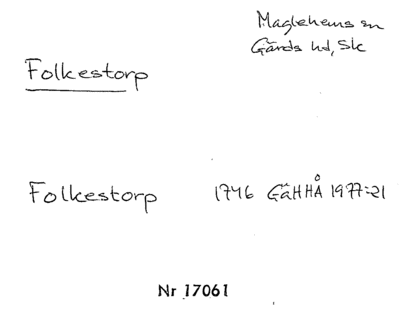 Maglehems sn
Gärds hd, Sk
Folkestorp
Folkestorp 1746 GäHHÅ 1977:21
Nr 17061